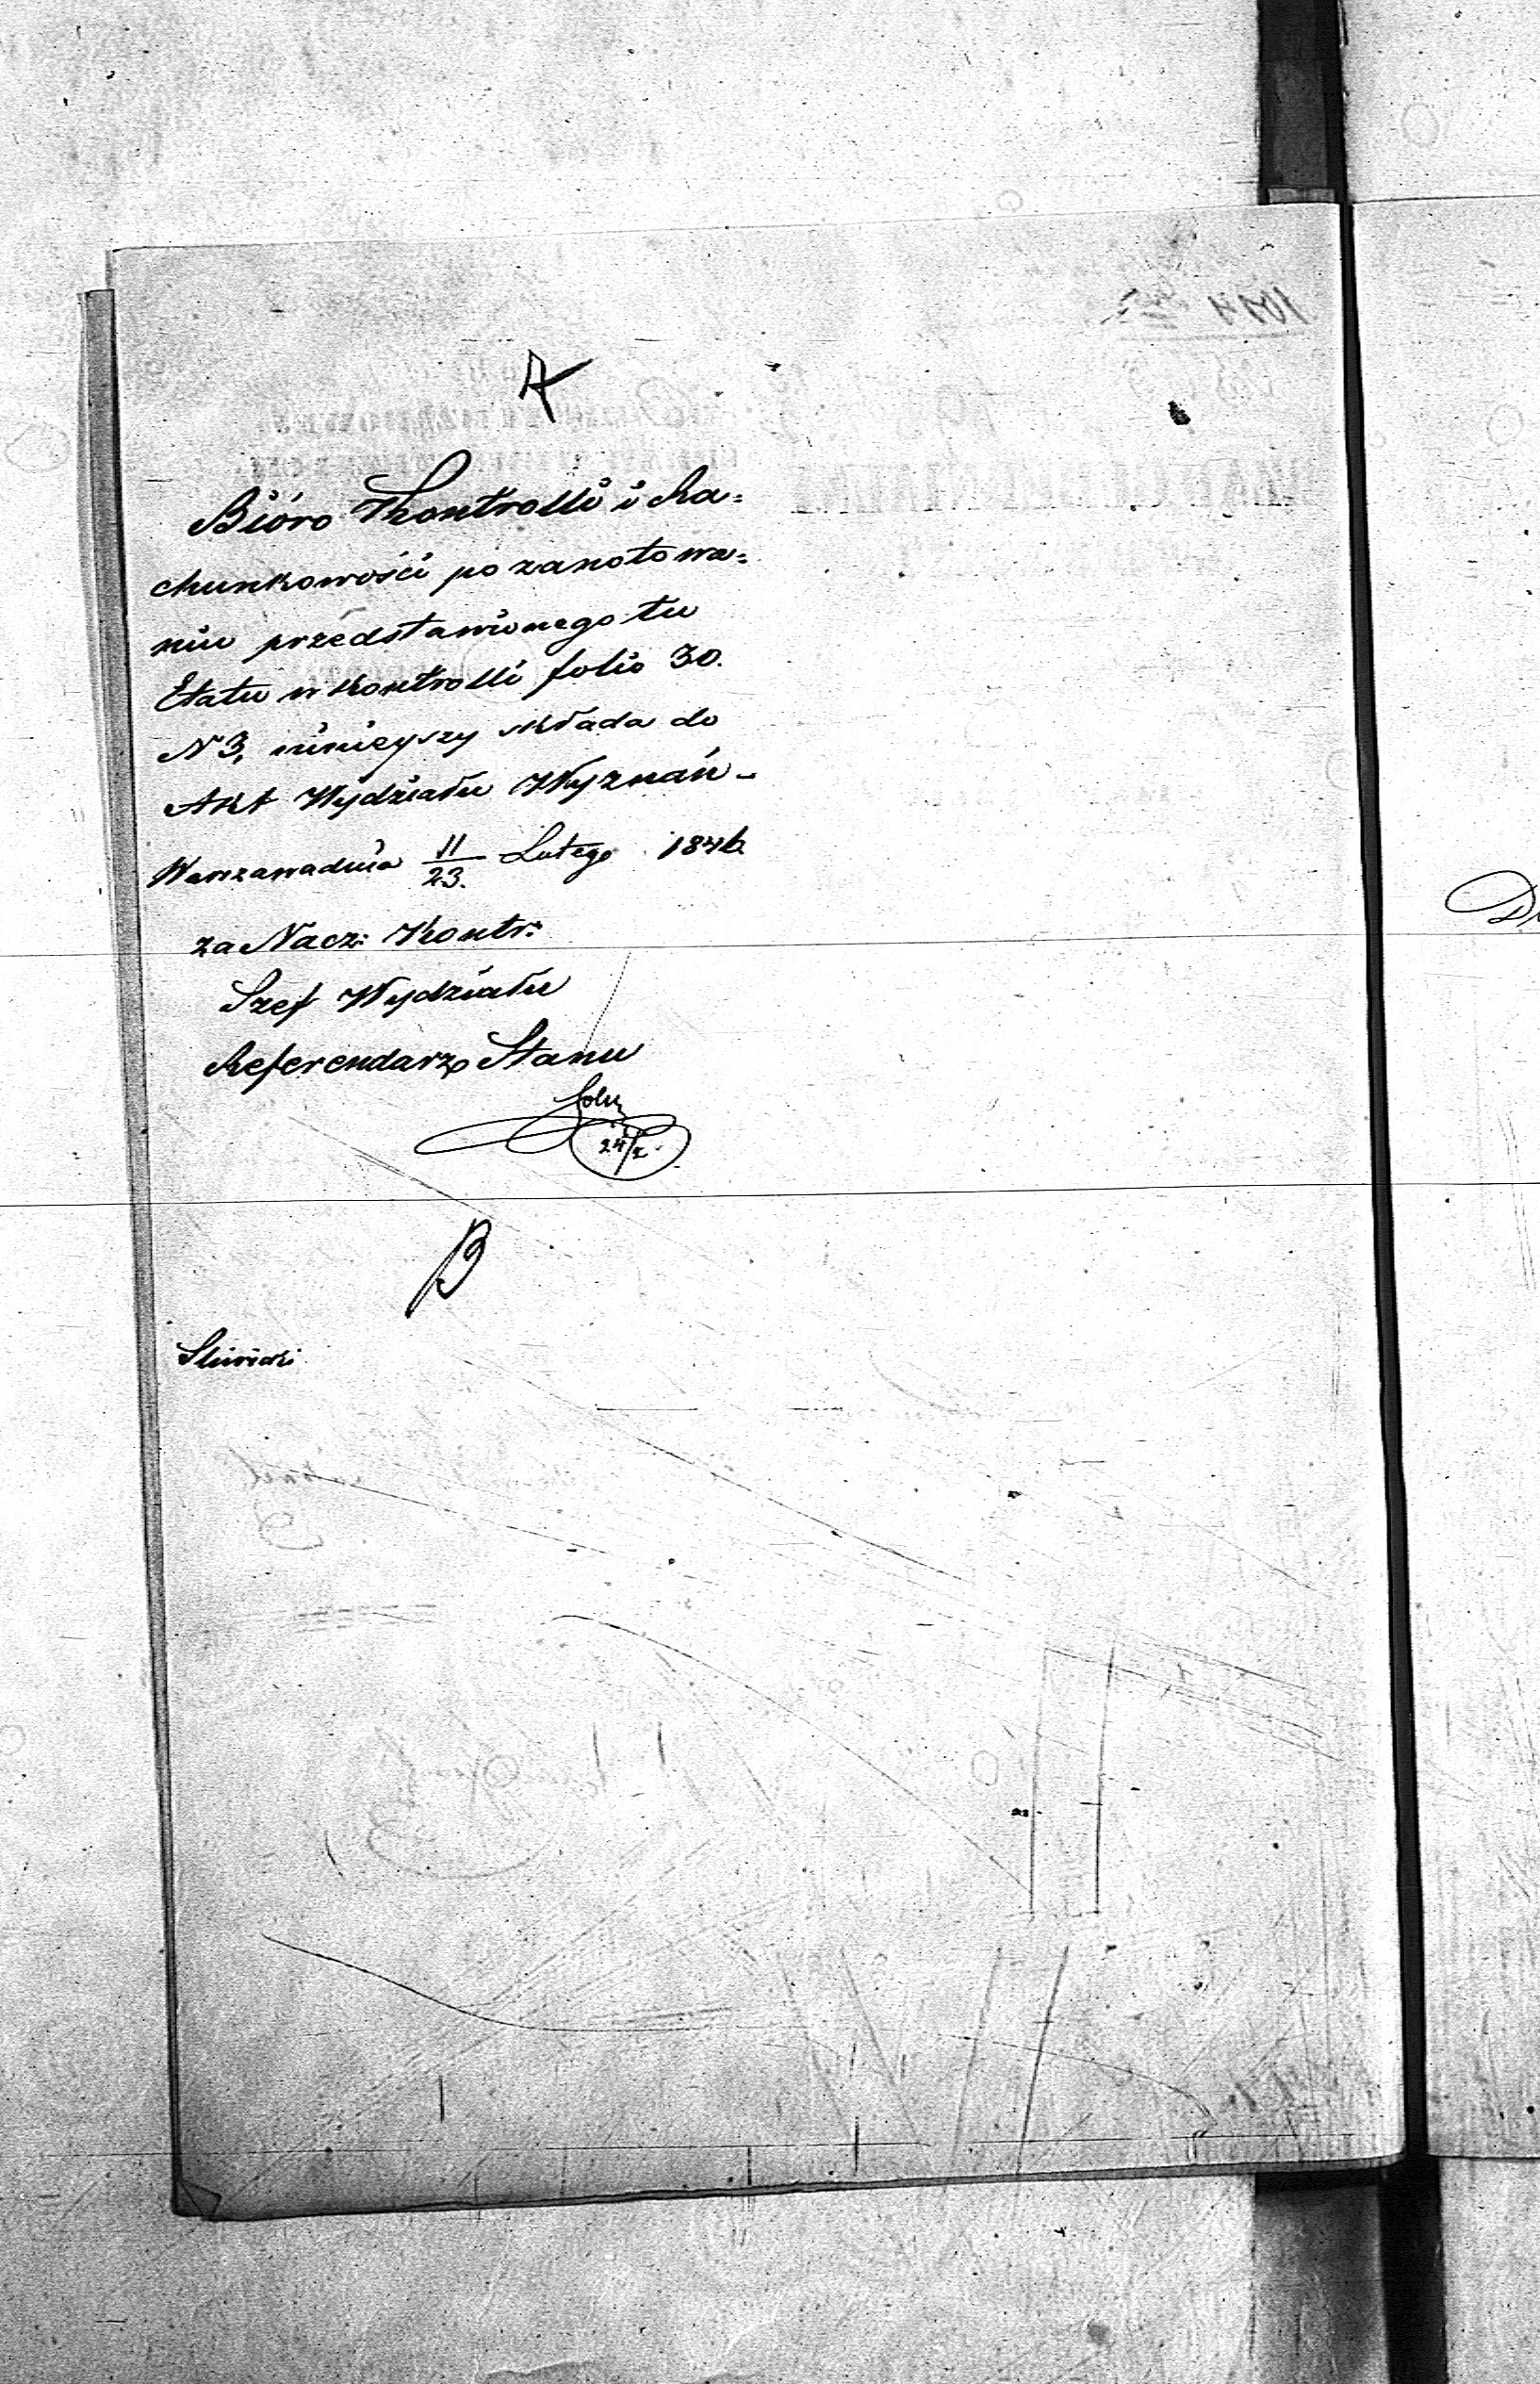 A
Bióro Kontrolli i Ra=
chunkowości po zanotowa=
niu przedstawionego tu
Etatu w Kontrolli folio 30.
N 3, ninieyszy składa do
Akt Wydziału Wyznań -
Warszawa dnia 11/23. Lutego 1846
za Nacz: Kontr:
Szef Wydziału
Referendarz Stanu
24/2
B